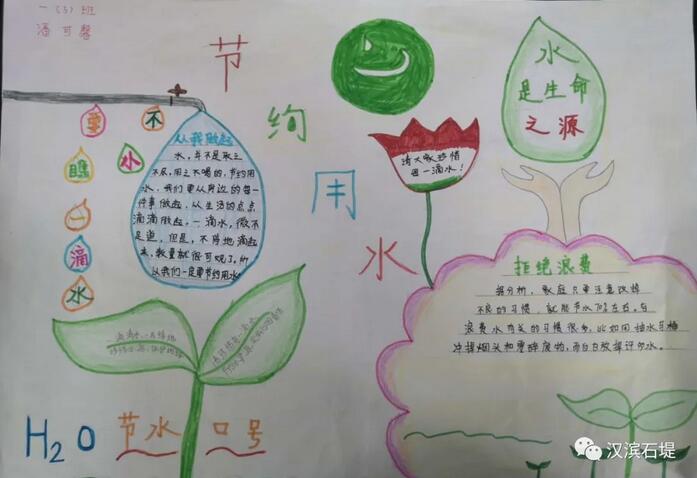 一(5)班
潘可馨
节
约
用
水
不
要
小
瞧
一
滴
水
从我做起
水,并不是取之
不尽,用之不竭的,节约用
水,我们要从身边的每一
件事做起,从生活的点点
滴滴做起,一滴水,微不
足道,但是,不停地滴起
来,数量就很可观了,所
以我们一定要节约用水
请大家珍惜
每一滴水!
水
是生命
之源
拒绝浪费
据分析,家庭只要注意改掉
不良的习惯,就能节水70%左右。与
浪费水有关的习惯很多,比如用抽水马桶
冲掉烟头和零碎废物,而白白放掉许多水。
H2O 节水 口号
汉滨石堤